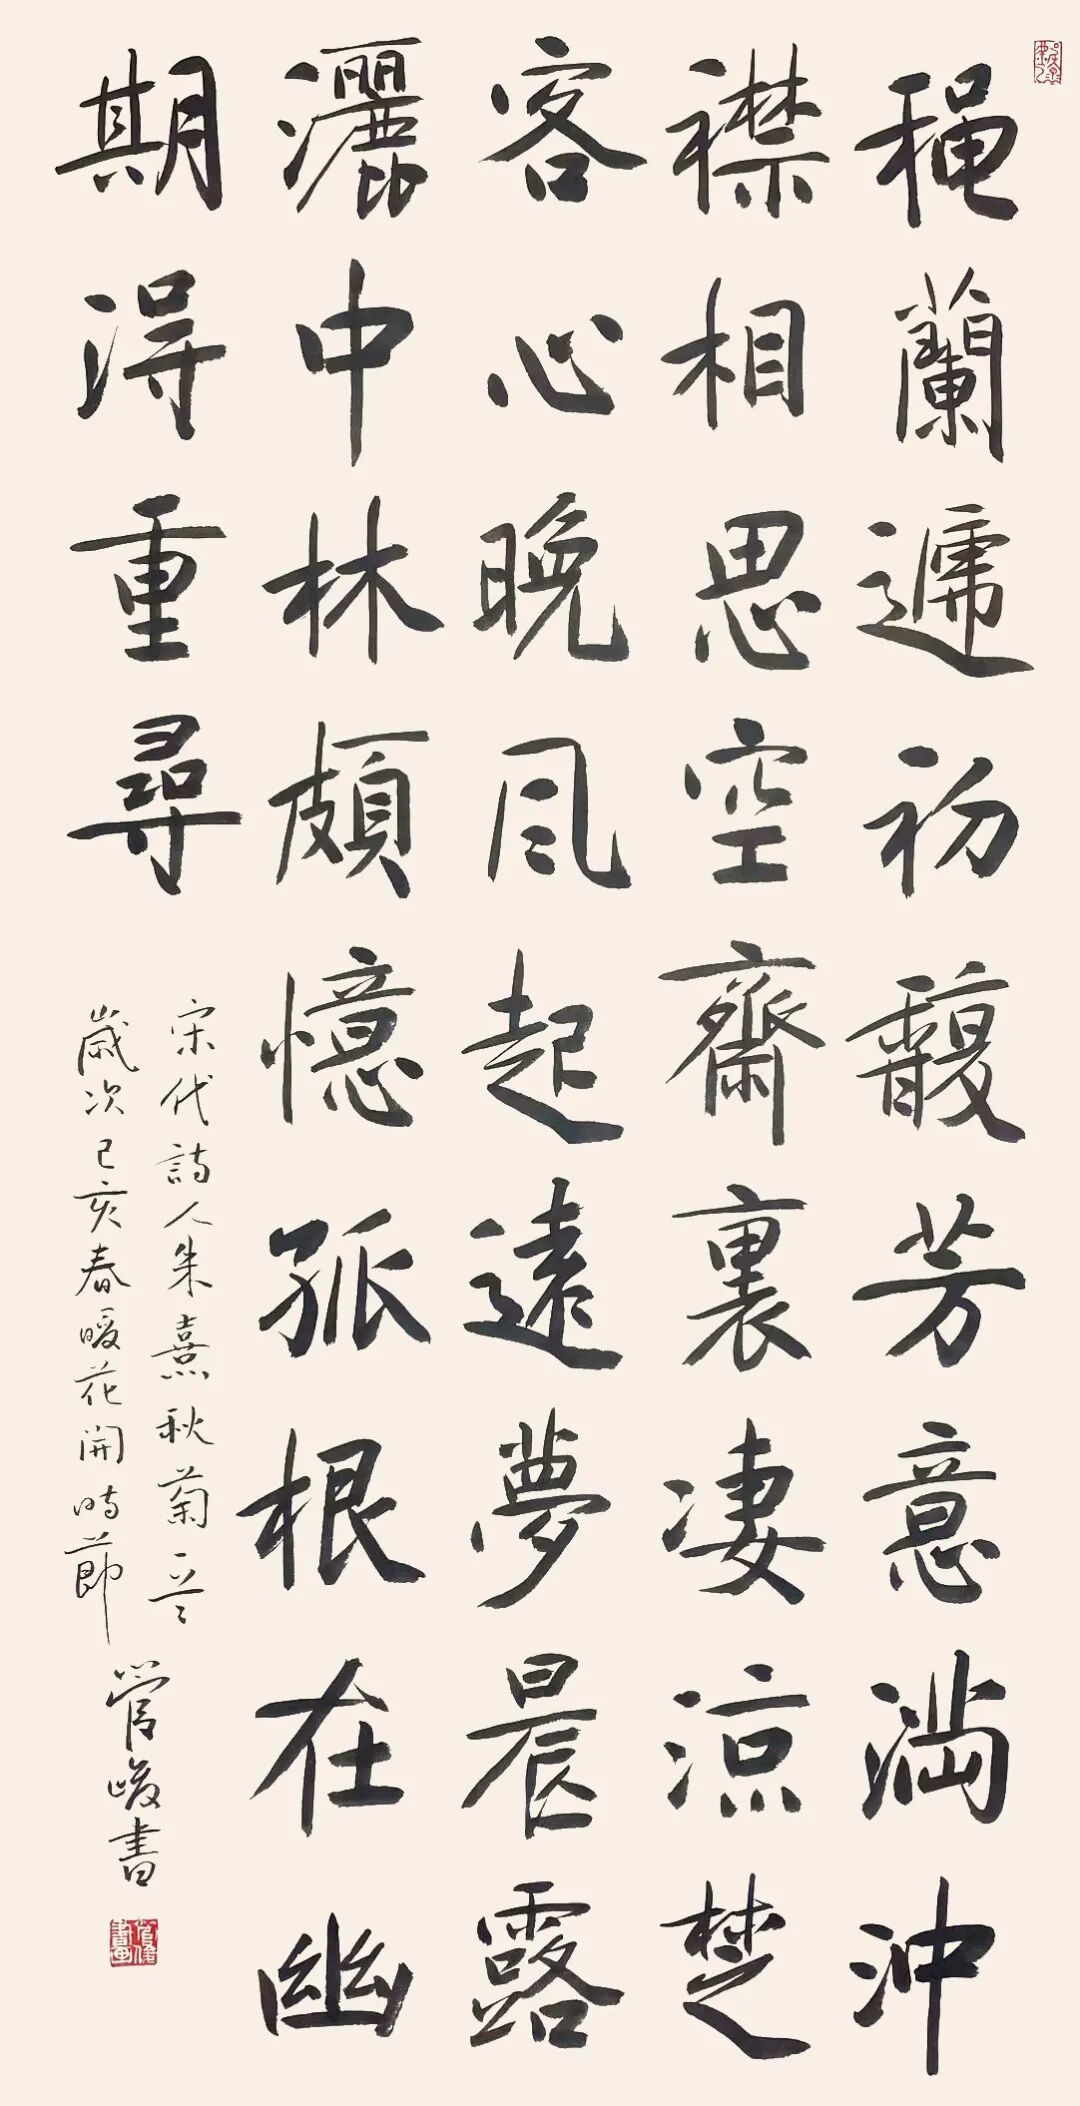 穐蘭遞初馥芳意滿沖
襟相思空齋裏淒涼楚
客心晚風起遠夢晨露
灑中林頗憶孤根在幽
期得重尋
宋代詩人朱熹秋
歲次己亥春暖花開時節
管峻書